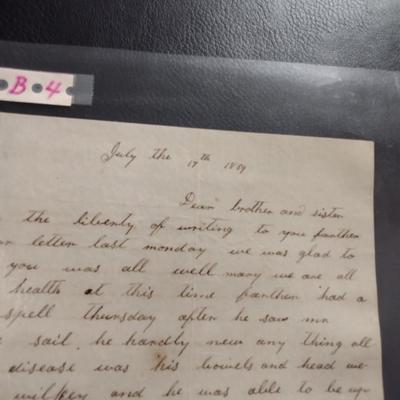 B 4
July the 17th 1859
Dear brother and sister
the liberty of writing to you
letter last monday we was glad to
you was all well many we are all
health at this time had a
spell thursday after he saw mr
sail he hardly new any thing all
disease was his bowels and head we
and he was able to be up